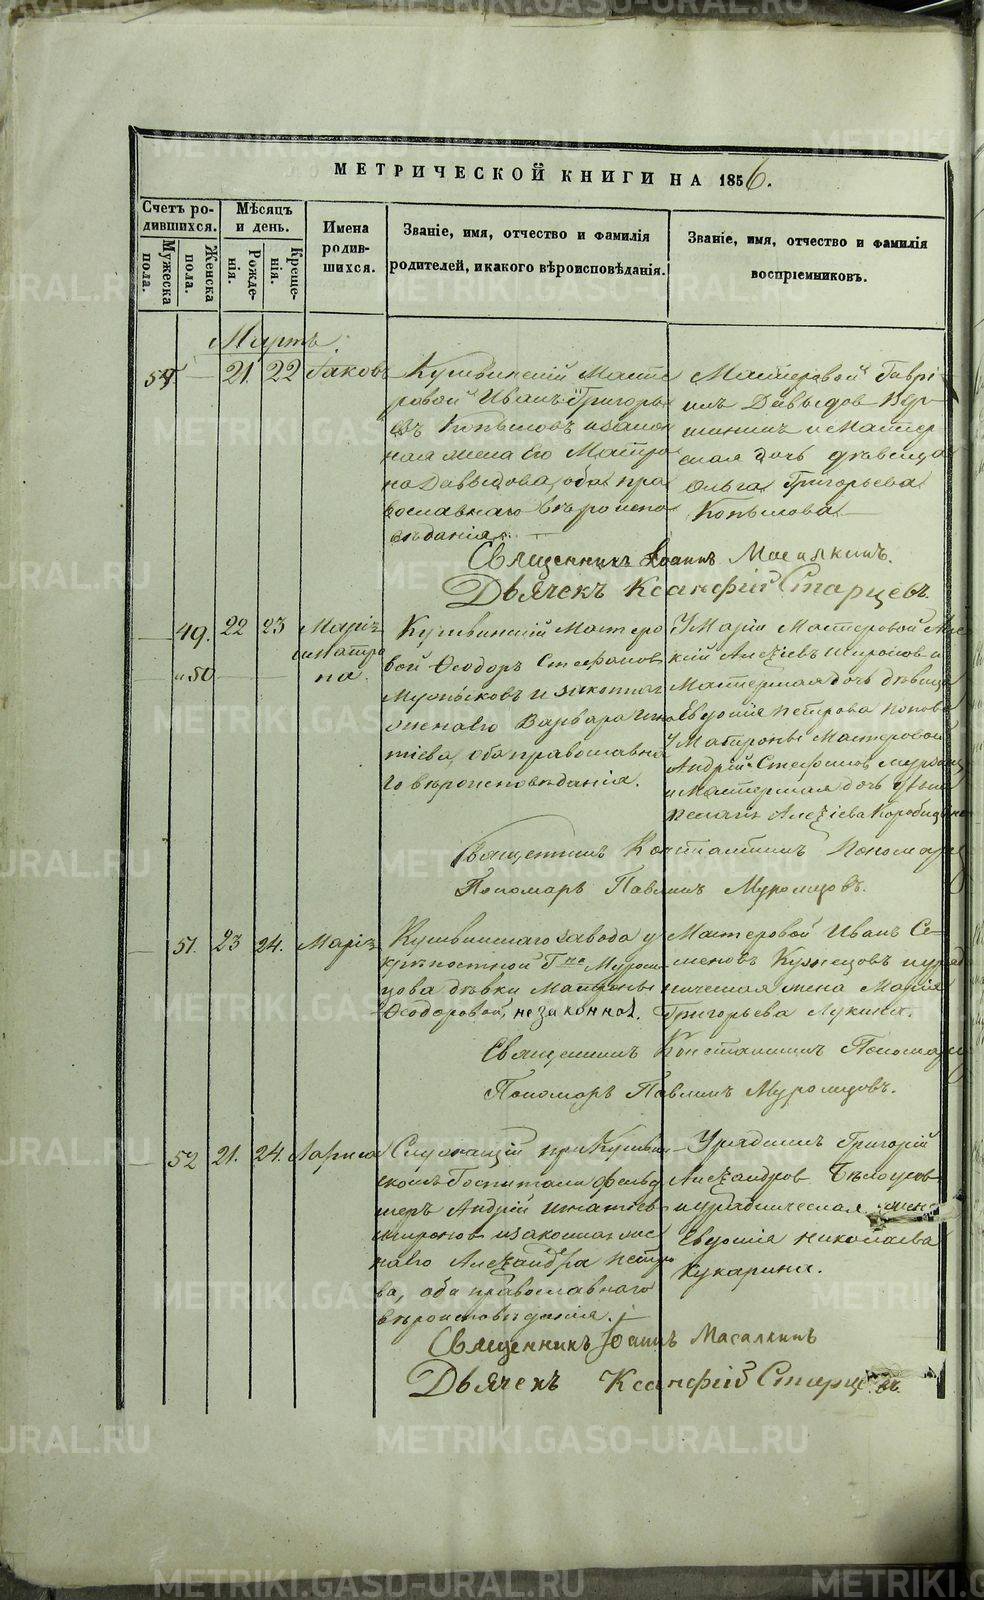 МЕТРИЧЕСКОЙ КНИГИ НА 1856.
Счетъ ро-
дившихся.
Мужеска
пола.
Женска
пола.
Мѣсяцъ
и день.
Рожде-
нія.
Креще-
нія.
Имена
родив-
шихся.
Званіе, имя, отчество и фамилія
родителей, и какого вѣроисповѣданія.
Званіе, имя, отчество и фамилія
воспріемниковъ.
Мартъ.
21. 22 Іаковъ
Кушвинскій Масте
ровой Иванъ Григорь
евъ Копыловъ и закон
ная жена его Матро
на Давыдова, оба пра
вославнаго вѣроиспо
вѣданія.
Мастеровой Гаврі
илъ Давыдов Вер
шининъ и Мастер
ская дочь дѣвица
Ольга Григорьева
Копылова
Священникъ Іоаннъ Масалкинъ.
Дьячекъ Ксанфій Старцевъ.
49. 22 23 Марія
и Матро
на.
„ 50
Кушвинскій Мастеро
вой Ѳеодоръ Стефанов
и законная
жена его Варвара Игна
тіева, оба православна
го вѣроисповѣданія.
У Маріи Мастеровой
Алексіевъ Широков и
Мастерская дочь дѣвица
Евдокія Петрова Попова
У Матроны Мастеровой
Андрій Стефанов
и Мастерская дочь дѣвица
Алексіева
Священникъ Константинъ Пономарев
Пономарь Павлинъ Муромцовъ.
51. 23 24. Марія
Кушвинскаго завода у
крѣпостной Гна Муром
цова дѣвки Матроны
Ѳеодоровой, незаконноя.
Мастеровой Иван Се-
меновъ Кузнецовъ и уряд
ническая жена Марія
Григорьева Лукина.
Священникъ Константинъ Пономарев
Пономарь Павлинъ Муромцовъ.
52 21. 24. Лариса
Служащій при Кушвин
скомъ Госпитали фельд
шеръ Андрій Игнатіев
Широков и законная же
на его Александра Петро
ва, оба православнаго
вѣроисповѣданія.
Урядникъ Григорій
Александров Бѣлоусов
и урядническая жена
Евдокія Николаева
Кукарина.
Священникъ Іоаннъ Масалкинъ
Дьячекъ Ксанфій Старцевъ.